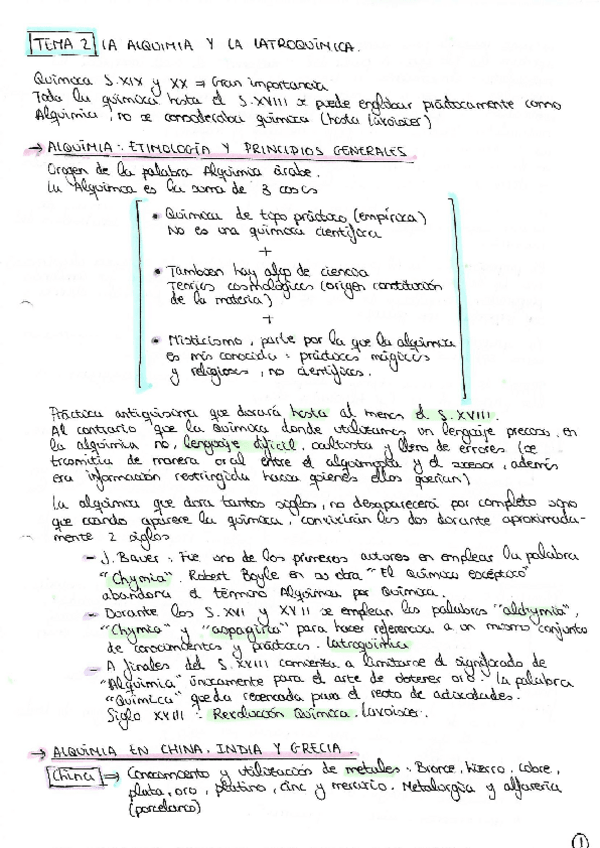 TEMA 2 LA ALQUIMIA Y LA IATROQUÍMICA.
Química S.XIX y XX ⇒ Gran importancia
Toda la química hasta el S.XVIII se puede englobar prácticamente como
Alquimia, no se consideraba química (hasta Lavoisier)
→ ALQUIMIA: ETIMOLOGÍA Y PRINCIPIOS GENERALES
Origen de la palabra Alquimia árabe.
La Alquimia es la suma de 3 cosas
• Química de tipo práctico (empírica)
No es una química científica
+
• Tambien hay algo de ciencia
Teorías cosmológicas (origen constitución
de la materia)
+
• Misticismo, parte por la que la alquimia
es más conocida: prácticas mágicas
y religiosas, no científicas.
Práctica antiquísima que durará hasta al menos el S.XVIII.
Al contrario que la química donde utilizamos un lenguaje preciso, en
la alquimia no, lenguaje difícil, ocultista y lleno de errores (se
trasmitía de manera oral entre el alquimista y el sucesor, además
era información restringida hacia quienes ellos querían)
La alquimia que dura tantos siglos, no desaparecerá por completo sino
que cuando aparece la química, convivirán las dos durante aproximada-
mente 2 siglos
- J. Bauer: Fue uno de los primeros autores en emplear la palabra
"Chymia". Robert Boyle en su obra "El químico escéptico"
abandona el término Alquimia por Química.
- Durante los S.XVI y XVII se emplean las palabras "alchymia",
"Chymia" y "espagiria" para hacer referencia a un mismo conjunto
de conocimientos y prácticas. Iatroquímica
- A finales del S.XVIII comienza a limitarse el significado de
"Alquimia" únicamente para el arte de obtener oro. La palabra
"Química" queda reservada para el resto de actividades.
Siglo XVIII: Revolución Química. Lavoisier.
→ ALQUIMIA EN CHINA, INDIA Y GRECIA.
China ⇒ Conocimiento y utilización de metales: Bronce, hierro, cobre,
plata, oro, platino, cinc y mercurio. Metalurgia y alfarería
(porcelana)
1